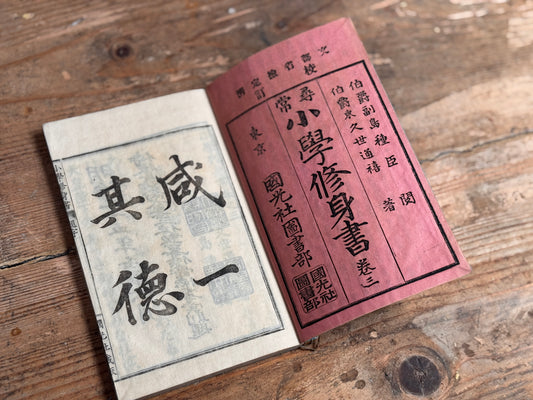 文部省檢定濟
校訂
伯爵副島種臣 閲
伯爵東久世通禧 著
尋常小學修身書 卷三
東京 國光社圖書部
國光社
圖書部
咸一
其德